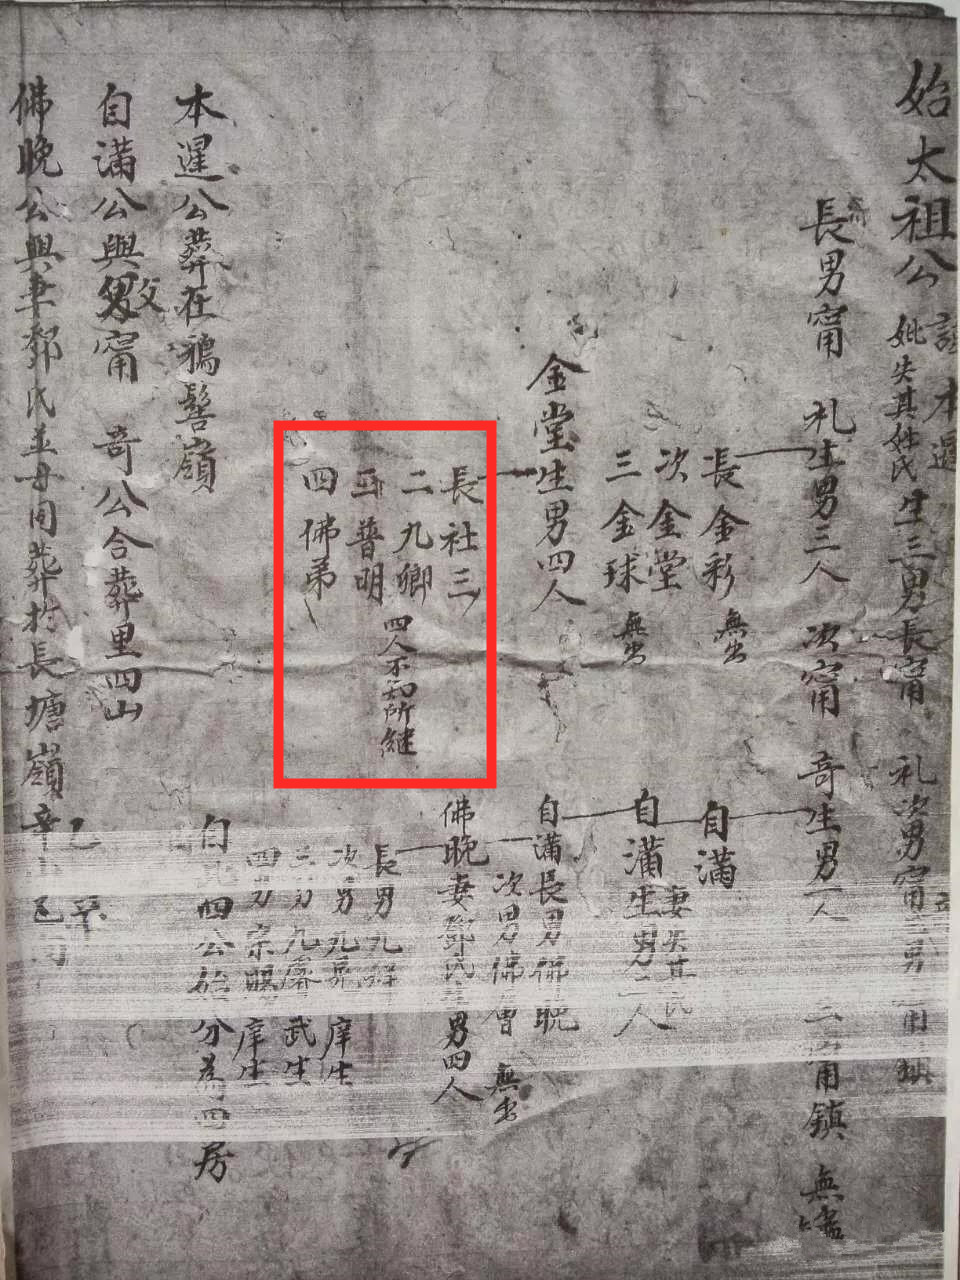 始太祖公諱本遲
妣失其姓氏生三男長甯礼次男甯三男甯鎮
長男甯礼生男三人次甯奇生男一人三甯鎮無嗣
長金彩無出
次金堂
三金球無出
金堂生男四人
長社三
二九卿
三普明
四佛弟
四人不知所継
自滿
妻失其氏
自滿生男二人
自滿長男佛晚
次男佛會無出
佛晚妻鄧氏生男四人
長男九
次男九 庠生
三男九 武生
四男宗 庠生
自 四公始分為四房
本遲公葬在鴉髻嶺
自滿公與父甯奇公合葬里四山
佛晚公與妻鄧氏並母同葬於長塘嶺辛山乙向